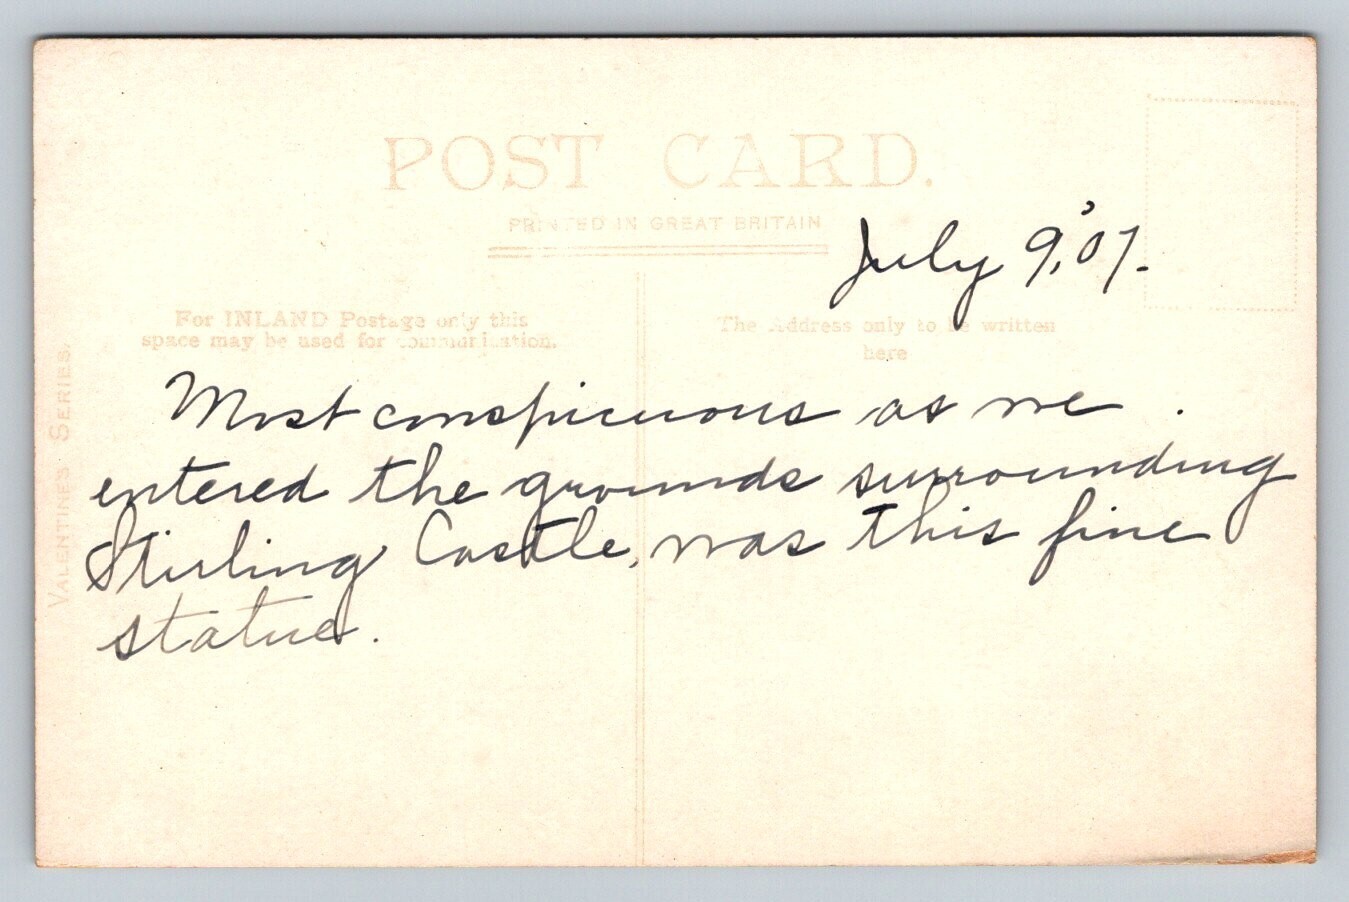 POST CARD.
PRINTED IN GREAT BRITAIN
July 9, '07.
For INLAND Postage only this
space may be used for communication.
The Address only to be written
here
VALENTINE'S SERIES.
Most conspicuous as we
entered the grounds surrounding
Stirling Castle, was this fine
statue.